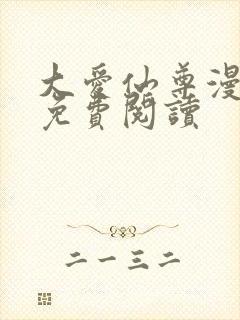 大愛仙尊漫
免費閱讀
二一三二